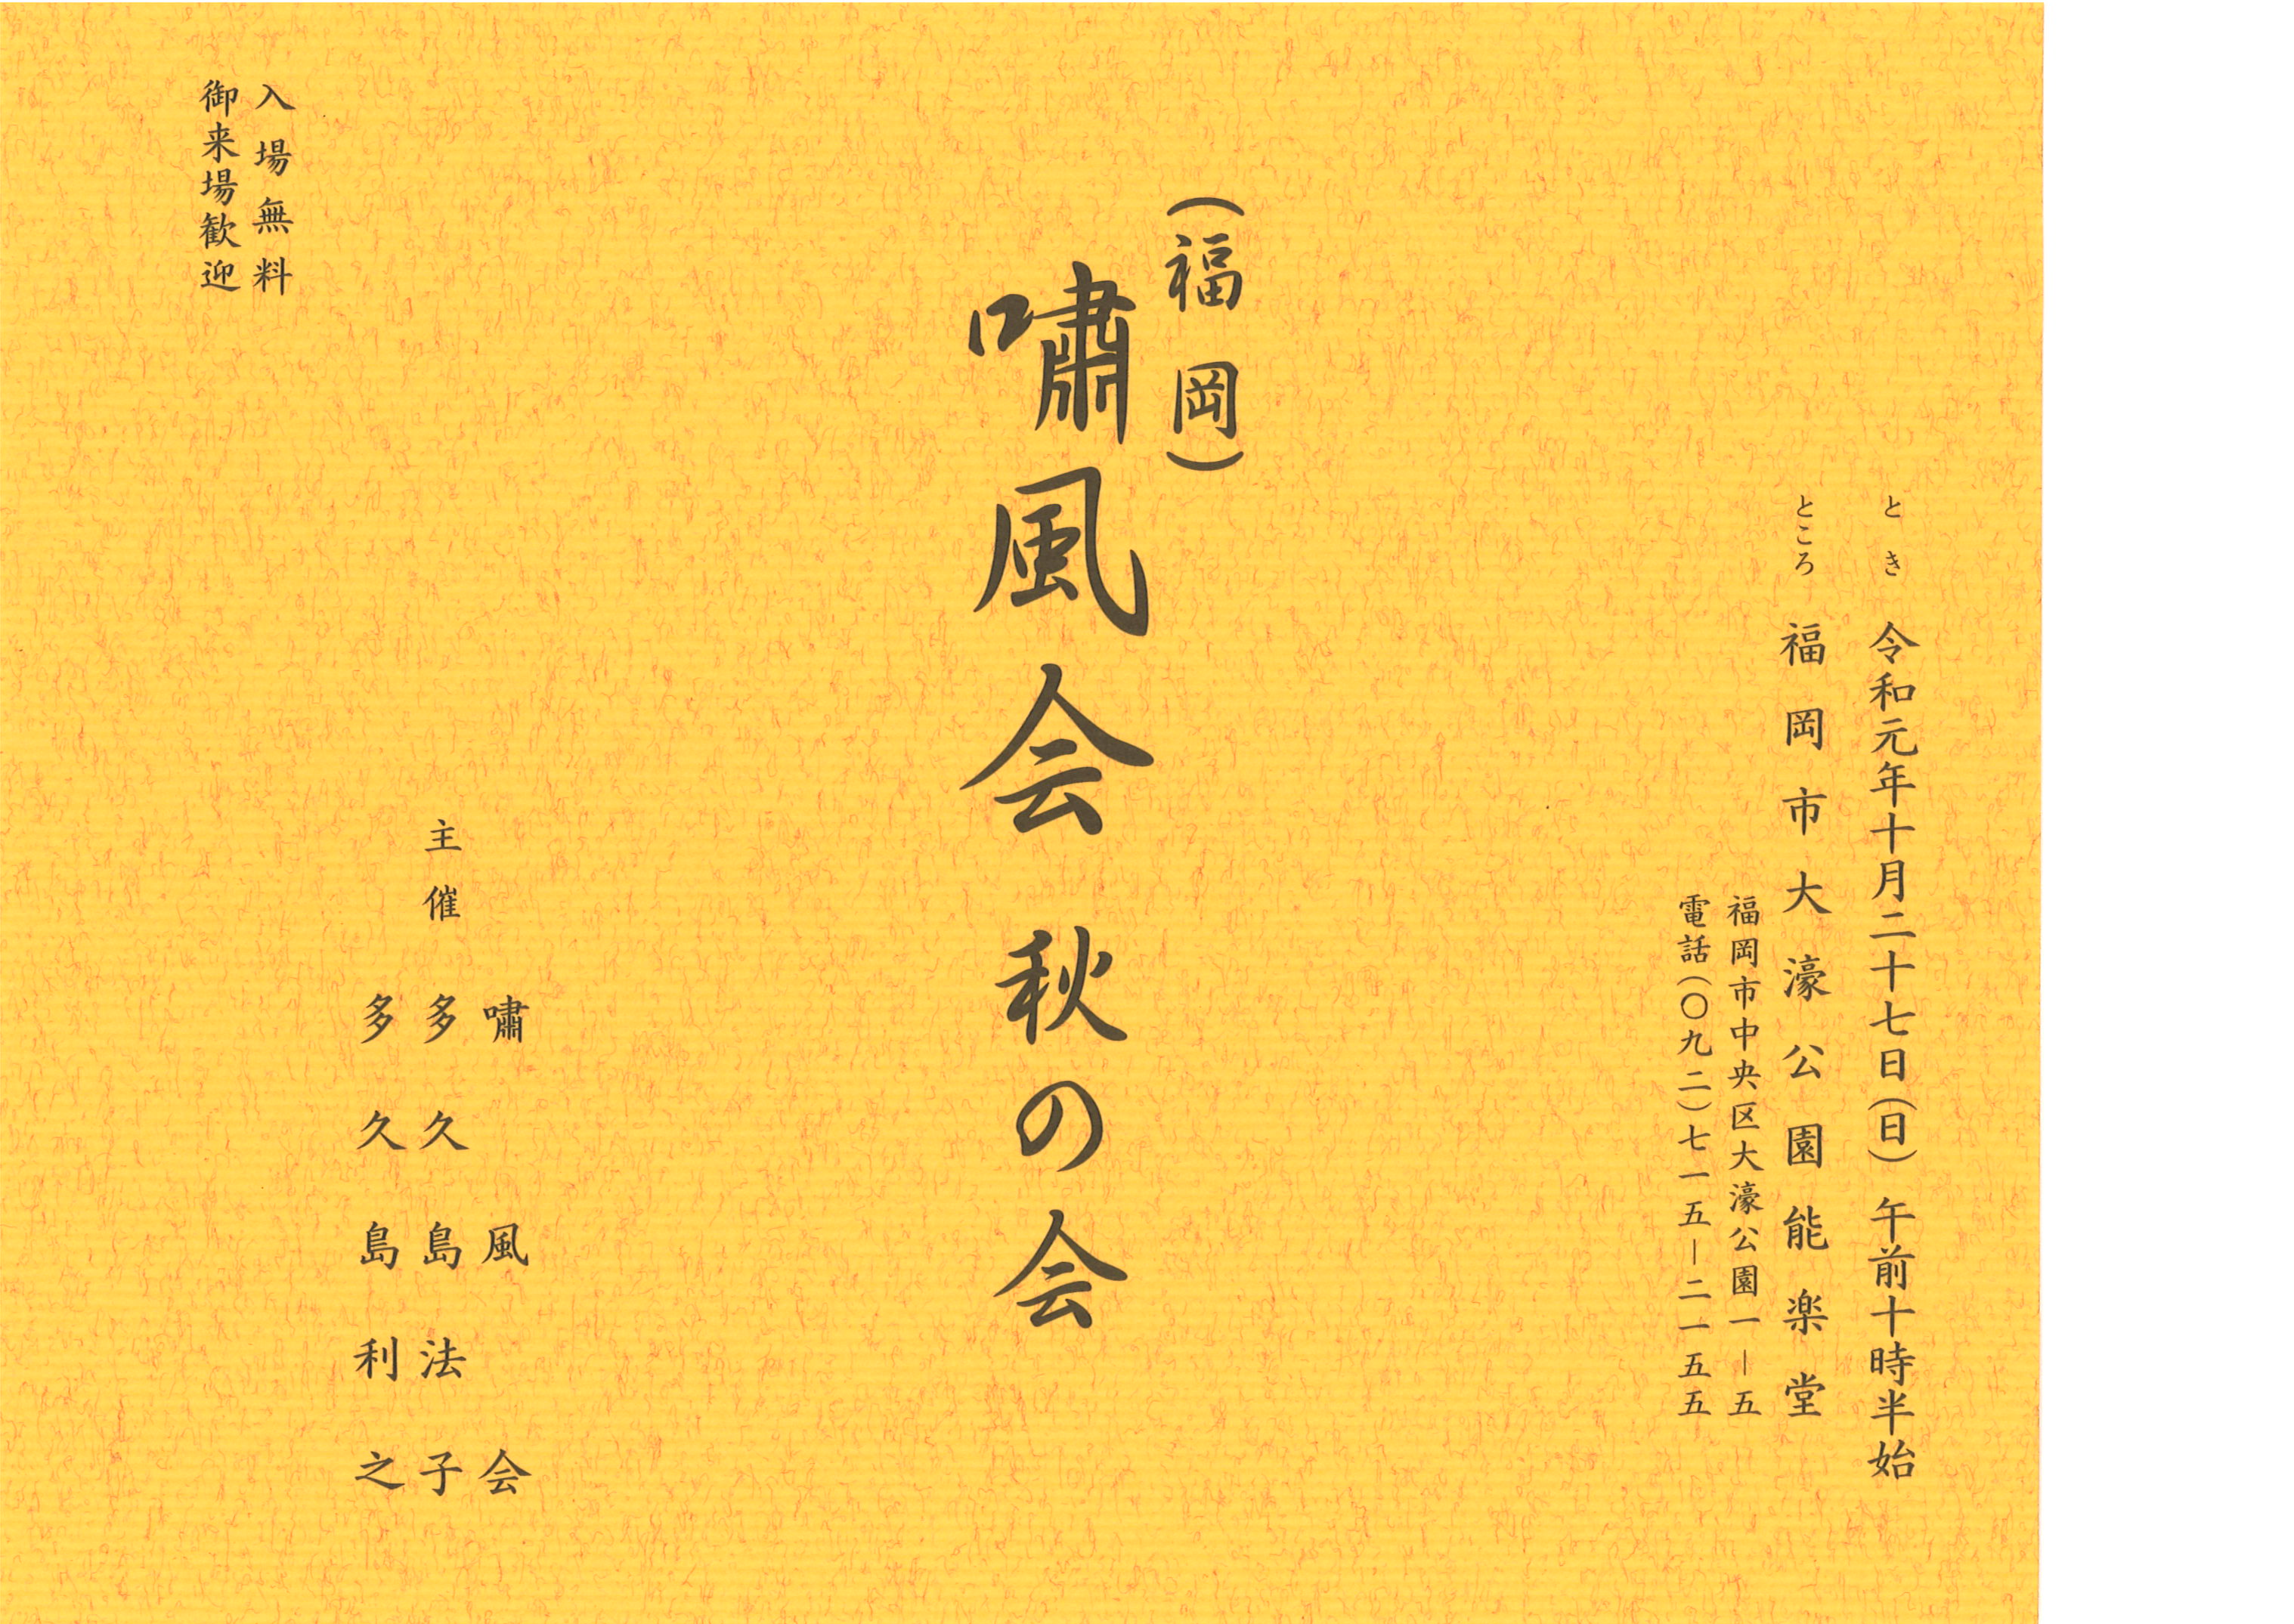 とき 令和元年十月二十七日(日) 午前十時半始
ところ 福岡市大濠公園能楽堂
福岡市中央区大濠公園一-五
電話(〇九二)七一五-二一五五
(福岡)
嘯風会 秋の会
嘯風会
主催 多久島法子
多久島利之
入場無料
御来場歓迎